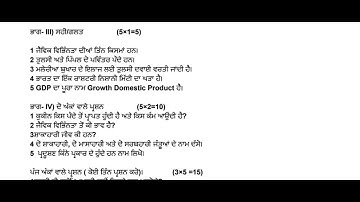 ਭਾਗ- III) ਸਹੀ/ਗਲਤ (5×1=5)
1 ਜੈਵਿਕ ਵਿਭਿੰਨਤਾ ਦੀਆਂ ਤਿੰਨ ਕਿਸਮਾਂ ਹਨ।
2 ਤੁਲਸੀ ਅਤੇ ਪਿੱਪਲ ਦੇ ਪਵਿੱਤਰ ਪੌਦੇ ਹਨ।
3 ਮਲੇਰੀਆ ਬੁਖਾਰ ਦੇ ਇਲਾਜ ਲਈ ਤੁਲਸੀ ਦਵਾਈ ਵਰਤੀ ਜਾਂਦੀ ਹੈ।
4 ਭਾਰਤ ਦਾ ਇੱਕ ਰਾਸ਼ਟਰੀ ਨਿਸ਼ਾਨੀ ਮਿੱਟੀ ਦਾ ਘੜਾ ਹੈ।
5 GDP ਦਾ ਪੂਰਾ ਨਾਮ Growth Domestic Product ਹੈ।
ਭਾਗ- IV) ਦੋ ਅੰਕਾਂ ਵਾਲੇ ਪ੍ਰਸ਼ਨ (5×2=10)
1 ਕੁਨੀਨ ਕਿਸ ਪੌਦੇ ਤੋਂ ਪ੍ਰਾਪਤ ਹੁੰਦੀ ਹੈ ਅਤੇ ਕਿਸ ਕੰਮ ਆਉਂਦੀ ਹੈ?
2 ਜੈਵਿਕ ਵਿਭਿੰਨਤਾ ਤੋਂ ਕੀ ਭਾਵ ਹੈ?
3ਸ਼ਾਕਾਹਾਰੀ ਜੀਵ ਕੀ ਹਨ?
4 ਦੋ ਸ਼ਾਕਾਹਾਰੀ, ਦੋ ਮਾਸਾਹਾਰੀ ਅਤੇ ਦੋ ਸਰਬਾਹਾਰੀ ਜੰਤੂਆਂ ਦੇ ਨਾਮ ਦੱਸੋ।
5 ਪ੍ਰਦੂਸ਼ਣ ਕਿੰਨੇ ਪ੍ਰਕਾਰ ਦੇ ਹੁੰਦੇ ਹਨ ਨਾਮ ਲਿਖੋ।
ਪੰਜ ਅੰਕਾਂ ਵਾਲੇ ਪ੍ਰਸ਼ਨ ( ਕੋਈ ਤਿੰਨ ਪ੍ਰਸ਼ਨ ਕਰੋ)। (3×5 =15)